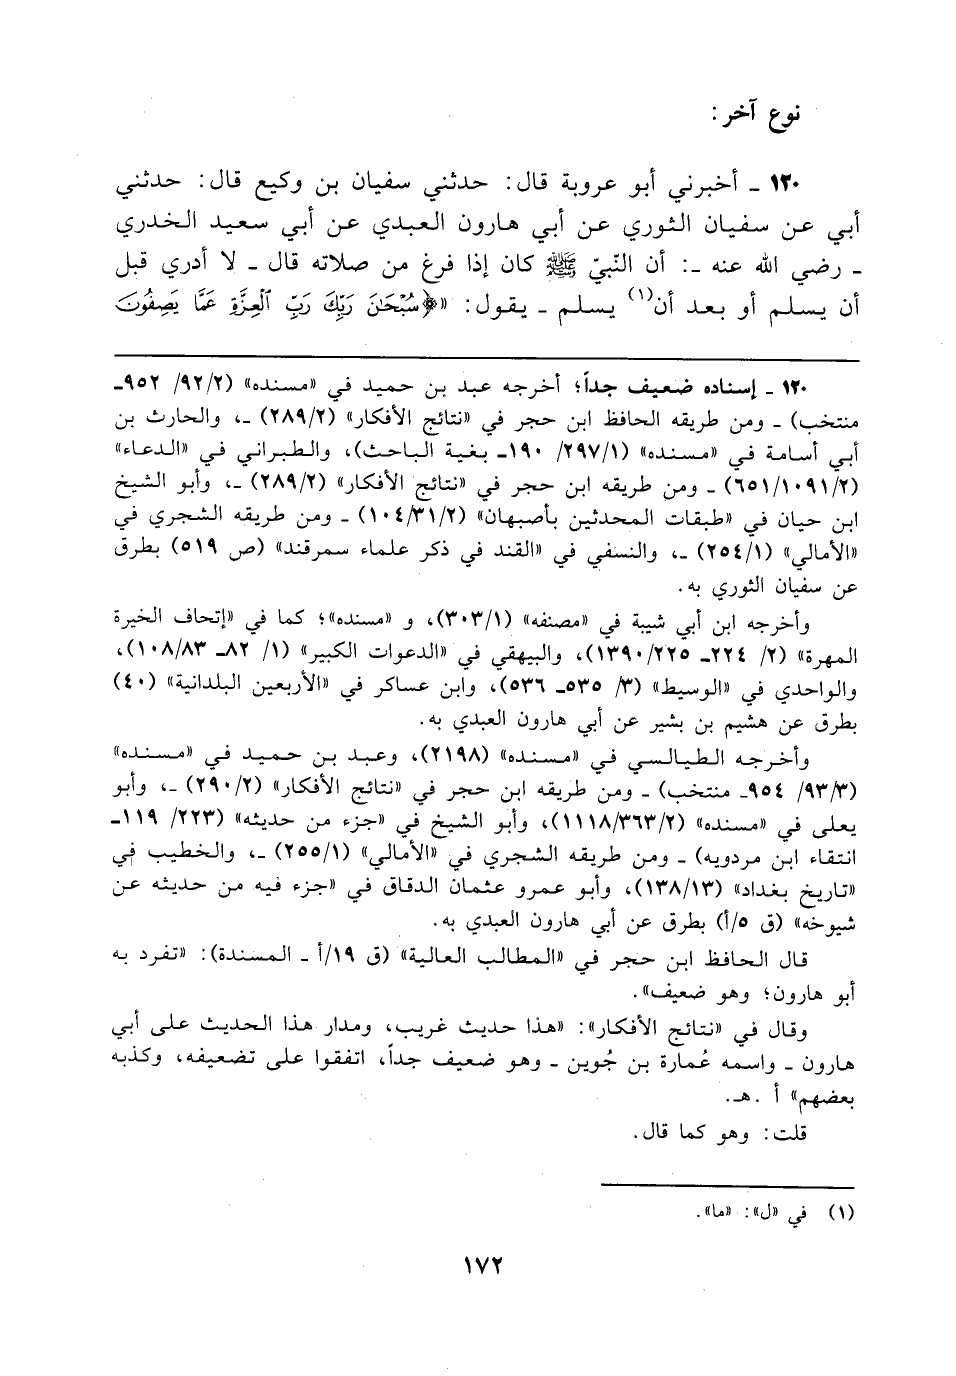 نوع آخر:
١٢٠ ـ أخبرني أبو عروبة قال: حدثني سفيان بن وكيع قال: حدثني
أبي عن سفيان الثوري عن أبي هارون العبدي عن أبي سعيد الخدري
ـ رضي الله عنه ـ: أن النّبيّ ﷺ كان إذا فرغ من صلاته قال ـ لا أدري قبل
أن يسلم أو بعد أن(١) يسلم ـ يقول: «﴿سُبْحَٰنَ رَبِّكَ رَبِّ ٱلْعِزَّةِ عَمَّا يَصِفُونَ
١٢٠ ـ إسناده ضعيف جداً؛ أخرجه عبد بن حميد في «مسنده» (٩٢/٢/ ٩٥٢ـ
منتخب) ـ ومن طريقه الحافظ ابن حجر في «نتائج الأفكار» (٢٨٩/٢) ـ، والحارث بن
أبي أسامة في «مسنده» (٢٩٧/١/ ١٩٠ـ بغية الباحث)، والطبراني في «الدعاء»
(٦٥١/١٠٩١/٢) ـ ومن طريقه ابن حجر في «نتائج الأفكار» (٢٨٩/٢) ـ، وأبو الشيخ
ابن حيان في «طبقات المحدثين بأصبهان» (١٠٤/٣١/٢) ـ ومن طريقه الشجري في
«الأمالي» (٢٥٤/١) ـ، والنسفي في «القند في ذكر علماء سمرقند» (ص ٥١٩) بطرق
عن سفيان الثوري به.
وأخرجه ابن أبي شيبة في «مصنفه» (٣٠٣/١)، و «مسنده»؛ كما في «إتحاف الخيرة
المهرة» (٢/ ٢٢٤ـ ١٣٩٠/٢٢٥)، والبيهقي في «الدعوات الكبير» (١/ ٨٢ـ ١٠٨/٨٣)،
والواحدي في «الوسيط» (٣/ ٥٣٥ـ ٥٣٦)، وابن عساكر في «الأربعين البلدانية» (٤٠)
بطرق عن هشيم بن بشير عن أبي هارون العبدي به.
وأخرجه الطيالسي في «مسنده» (٢١٩٨)، وعبد بن حميد في «مسنده»
(٩٣/٣/ ٩٥٤ـ منتخب) ـ ومن طريقه ابن حجر في «نتائج الأفكار» (٢٩٠/٢) ـ، وأبو
يعلى في «مسنده» (١١١٨/٣٦٣/٢)، وأبو الشيخ في «جزء من حديثه» (٢٢٣/ ١١٩ـ
انتقاء ابن مردويه) ـ ومن طريقه الشجري في «الأمالي» (٢٥٥/١) ـ، والخطيب في
«تاريخ بغداد» (١٣٨/١٣)، وأبو عمرو عثمان الدقاق في «جزء فيه من حديثه عن
شيوخه» (ق ٥/أ) بطرق عن أبي هارون العبدي به.
قال الحافظ ابن حجر في «المطالب العالية» (ق ١٩/أ ـ المسندة): «تفرد به
أبو هارون؛ وهو ضعيف».
وقال في «نتائج الأفكار»: «هذا حديث غريب، ومدار هذا الحديث على أبي
هارون ـ واسمه عُمارة بن جُوين ـ وهو ضعيف جداً، اتفقوا على تضعيفه، وكذبه
بعضهم» أ .هـ.
قلت: وهو كما قال.
(١) في «ل»: «ما».
١٧٢